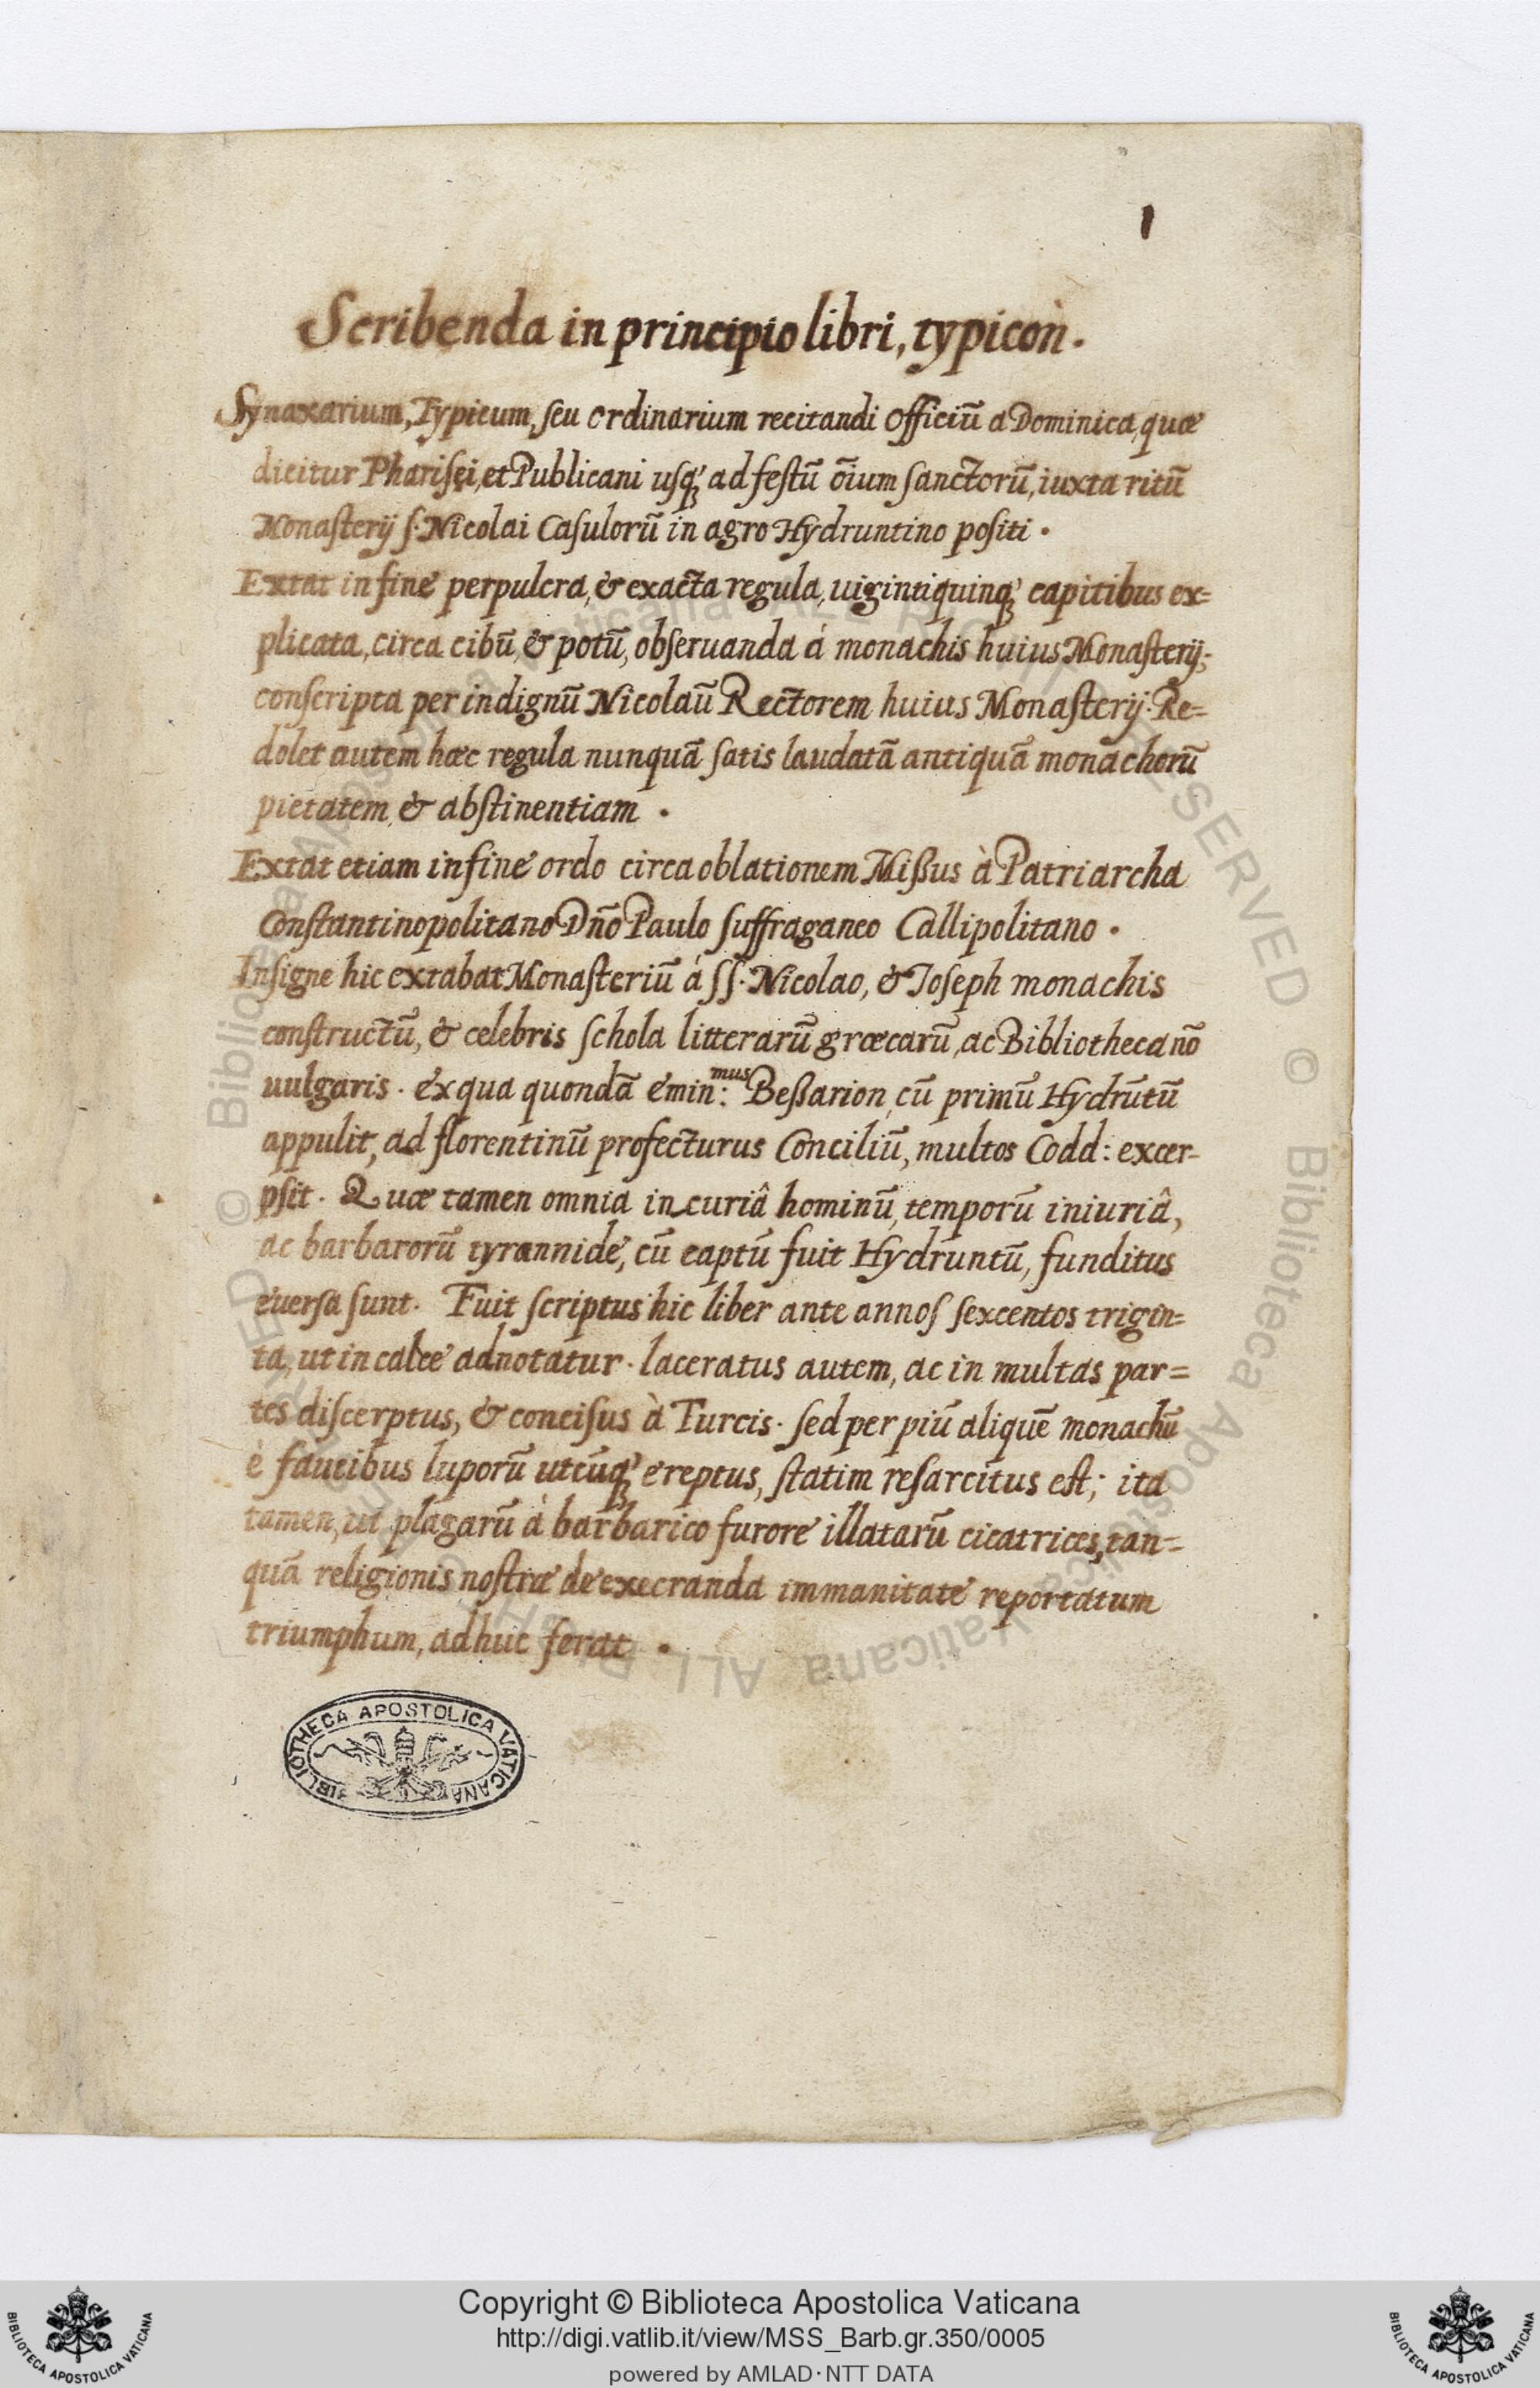 1
Scribenda in principio libri, typicòn.
Synaxarium, Typicum, seu ordinarium recitandi officiū a Dominica, quæ
dicitur Pharisęi, et Publicani usq' ad festū oīum sanctorū, iuxta ritū
Monasterij S. Nicolai Casulorū in agro Hydruntino positi.
Extat in fine perpulcra, & exacta regula, uigintiquinq' capitibus ex=
plicata, circa cibū, & potū, obseruanda á monachis huius Monasterij;
conscripta per indignū Nicolaū Rectorem huius Monasterij. Re=
dolet autem hæc regula nunquā satis laudatā antiquā monachorū
pietatem, & abstinentiam.
Extat etiam in fine ordo circa oblationem Missus à Patriarcha
Constantinopolitano Dño Paulo suffraganeo Callipolitano.
Insigne hic extabat Monasteriū á SS. Nicolao, & Ioseph monachis
constructū, & celebris schola litterarū græcarū, ac Bibliotheca nō
uulgaris. ex qua quondā emin:mus Bessarion, cū primū Hydrūtū
appulit, ad florentinū profecturus Conciliū, multos Codd: excer-
psit. Quæ tamen omnia incuriâ hominū, temporū iniuriâ,
ac barbarorū tyrannide, cū captū fuit Hydruntū, funditus
euersa sunt. Fuit scriptus hic liber ante annos sexcentos trigin=
ta, ut in calce adnotatur. laceratus autem, ac in multas par=
tes discerptus, & concisus à Turcis. sed per piū aliquē monachū
è faucibus luporū utcūq' ereptus, statim resarcitus est; ita
tamen, ut plagarū à barbarico furore illatarū cicatrices, tan=
quā religionis nostræ de execranda immanitate reportatum
triumphum, adhuc ferat.
BIBLIOTHECA APOSTOLICA VATICANA
© Biblioteca Apostolica Vaticana ALL RIGHTS RESERVED © Biblioteca Apostolica Vaticana ALL RIGHTS RESERVED
Copyright © Biblioteca Apostolica Vaticana
http://digi.vatlib.it/view/MSS_Barb.gr.350/0005
powered by AMLAD·NTT DATA
BIBLIOTECA APOSTOLICA VATICANA
BIBLIOTECA APOSTOLICA VATICANA